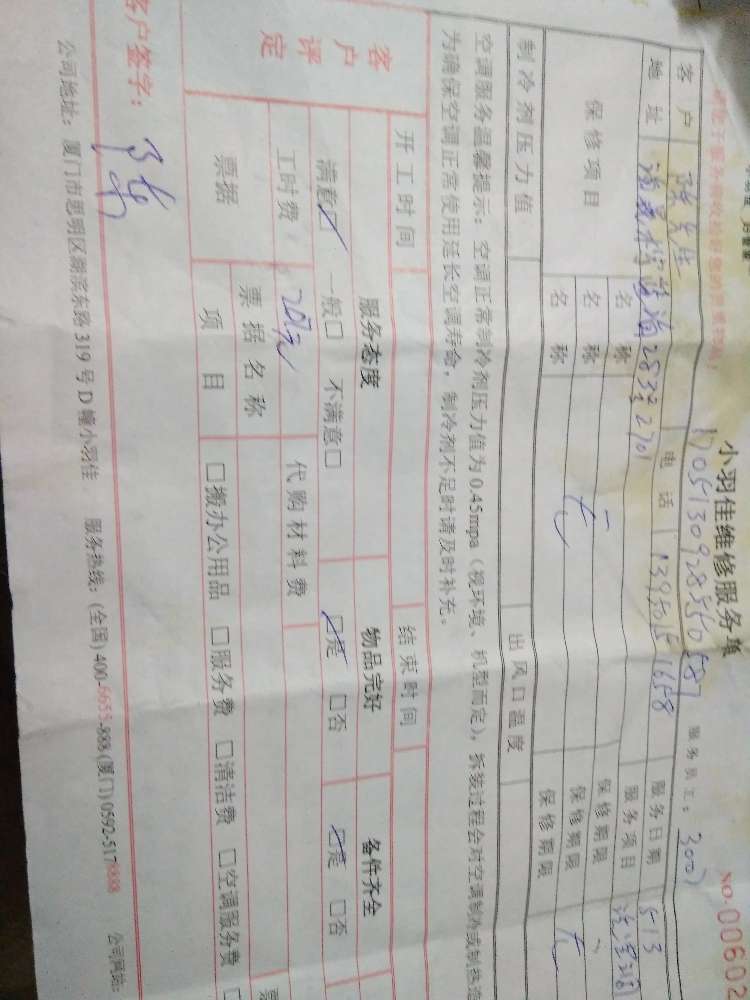 小羽佳维修服务单
NO.00602
服务员工：3001
客户 陈先生 电话 1395051658 服务日期 5.13
地址 283号2701 服务项目 洗空调
保修项目 名称 无 保修期限
名称 保修期限 无
名称 保修期限
制冷剂压力值 出风口温度
空调服务温馨提示：空调正常制冷剂压力值为0.45mpa（视环境、机型而定），拆装过程会对空调制冷或制热造
为确保空调正常使用延长空调寿命，制冷剂不足时请及时补充。
开工时间 结束时间
客户评定 服务态度 物品完好 备件齐全
满意☑ 一般□ 不满意□ ☑是 □否 ☑是 □否
工时费 代购材料费
票据 票据名称
项目 □搬办公用品 □服务费 □清洁费 □空调服务费
客户签字：
公司地址：厦门市思明区湖滨东路319号D幢小羽佳 服务热线：(全国)400-6655-888(厦门)0592-5178888 公司网站：